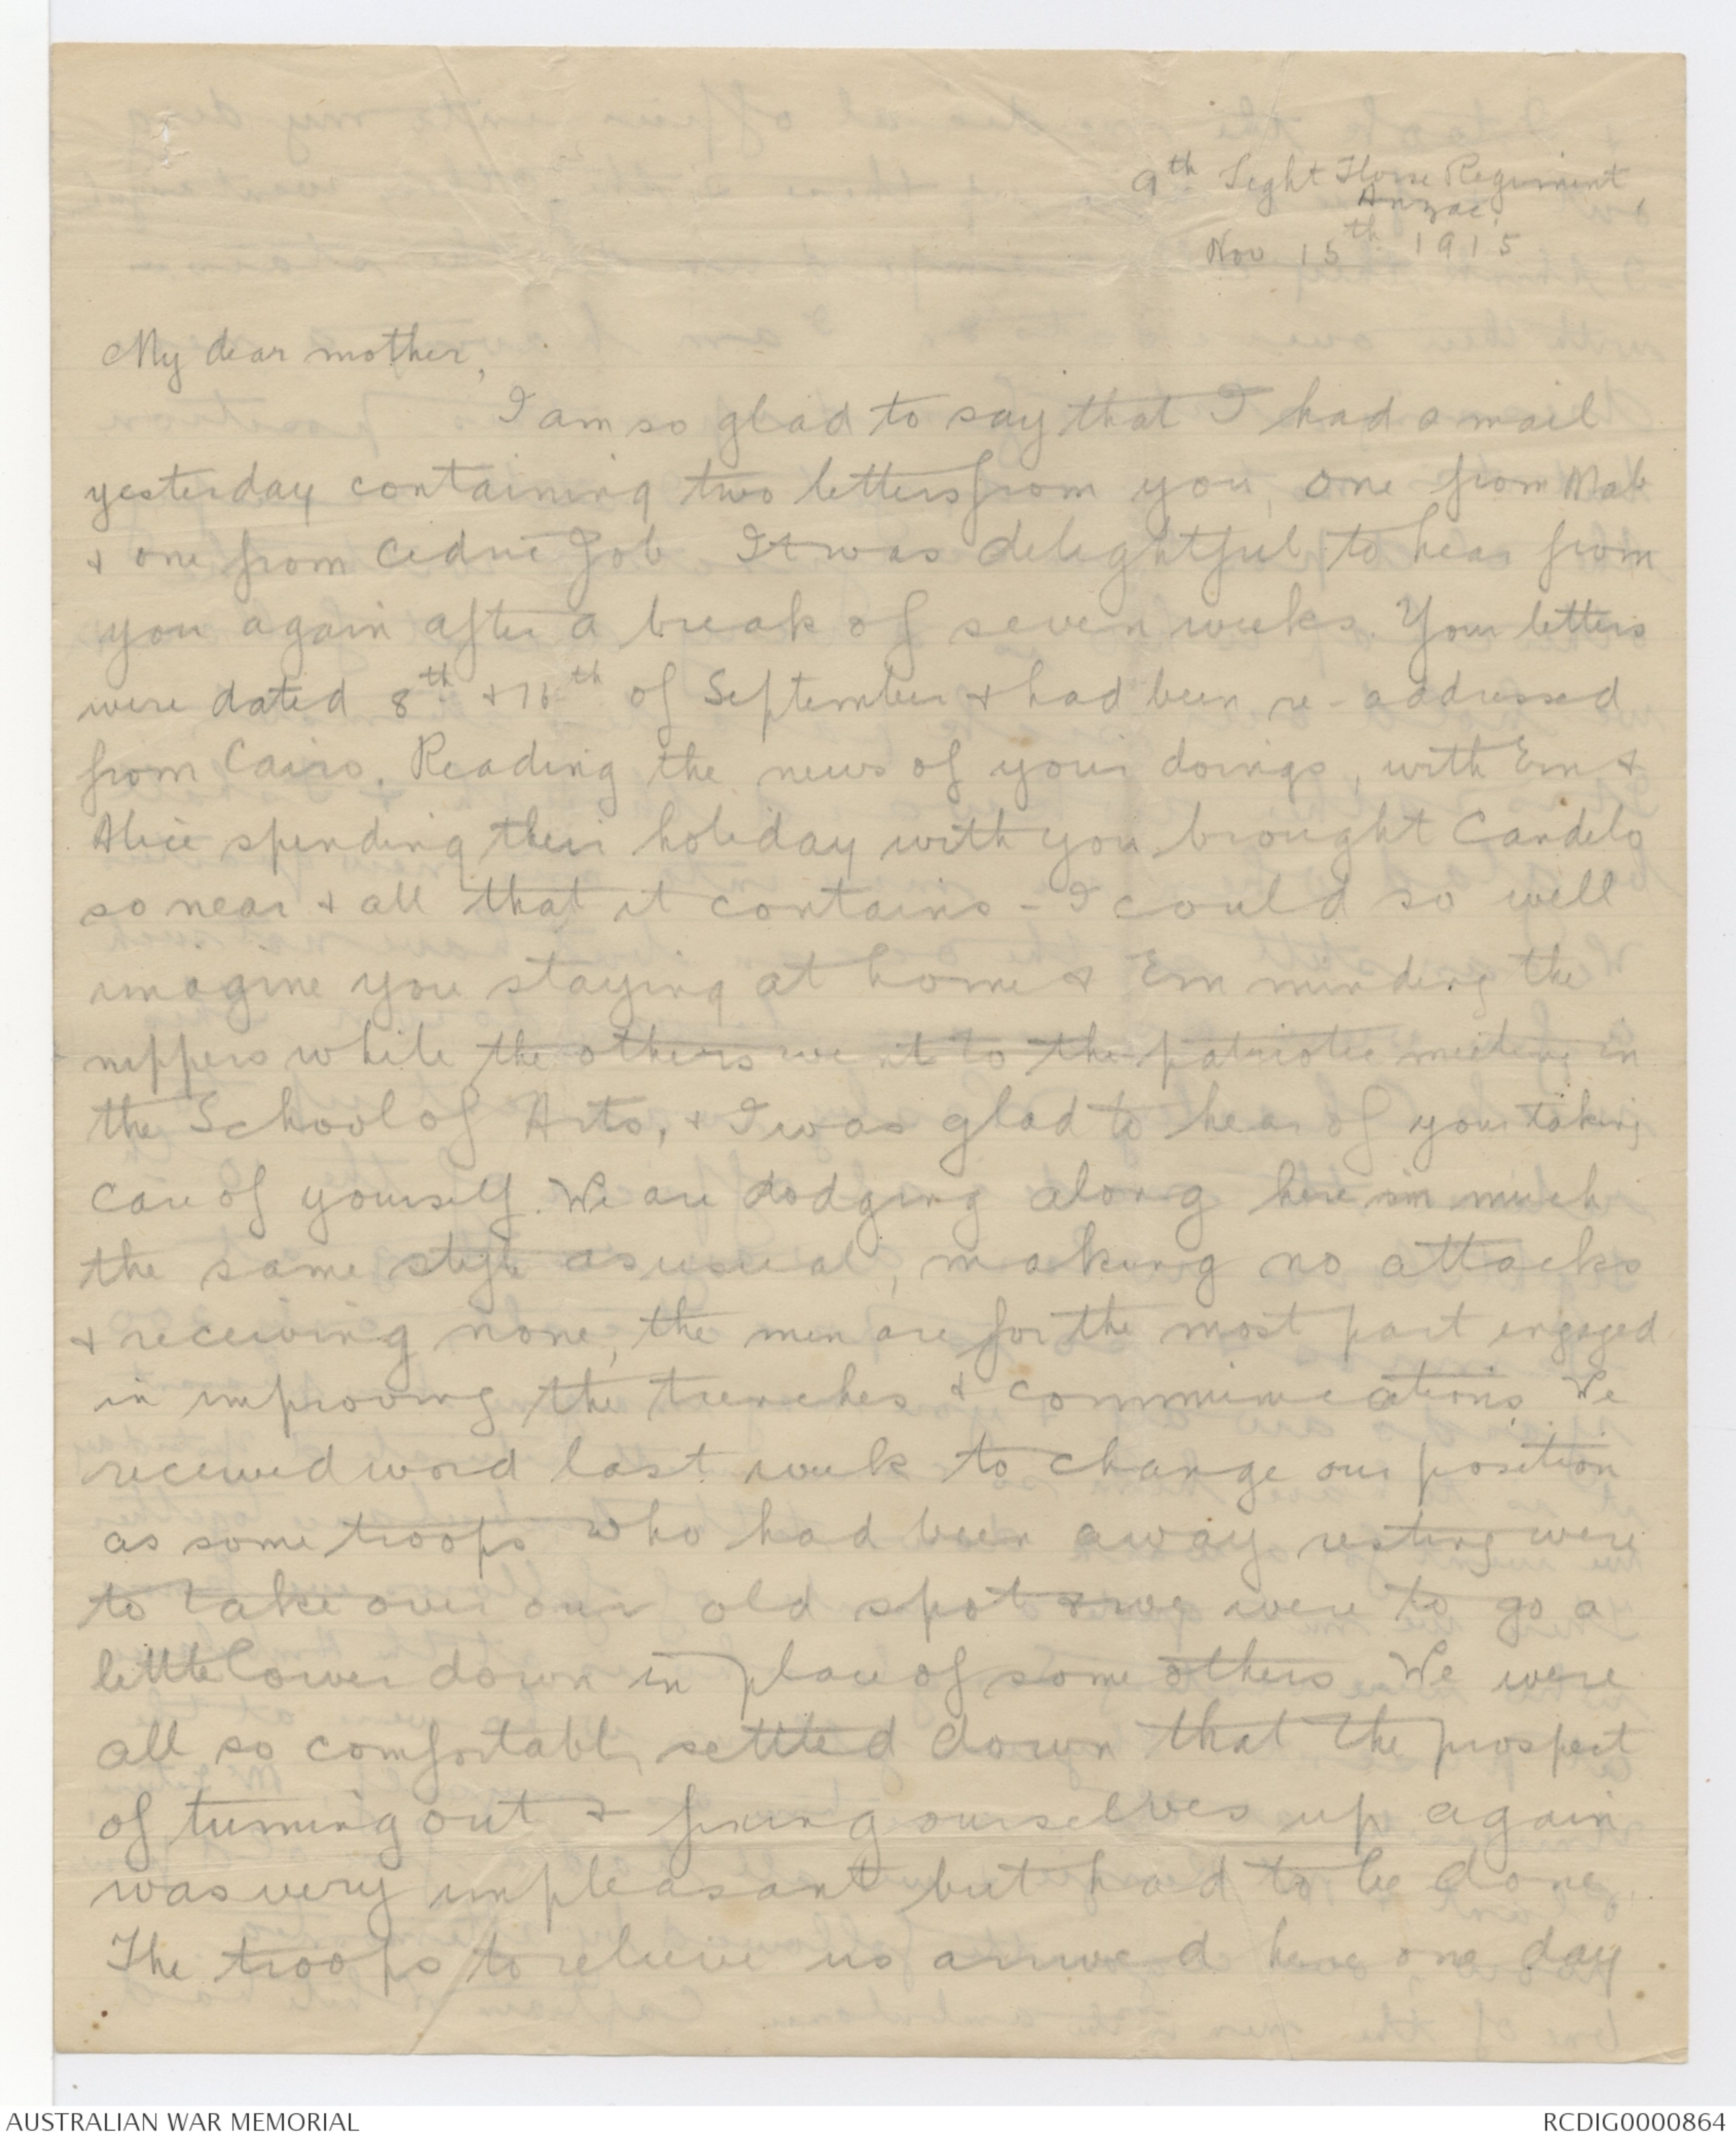 9th Light Horse Regiment,
Anzac.
Nov 15th 1915
My dear mother,
I am so glad to say that I had a mail
yesterday containing two letters from you, one from Mab
+ one from Cedric Job It was delightful to hear from
you again after a break of seven weeks. Your letters
were dated 8th + 16th of September + had been re-addressed
from Cairo. Reading the news of your doings, with Em +
Alice spending their holiday with you brought Candelo
so near + all that it contains - I could so well
imagine you staying at home + Em minding the
nippers while the others went to the patriotic meeting in
the School of Arts, + I was glad to hear of your taking
care of yourself. We are dodging along here in much
the same style as usual, making no attacks
+ receiving none, the men are for the most part engaged
in improving the trenches + communications. We
received word last week to change our position
as some troops who had been away resting were
to take over our old spot + we were to go a
little lower down in place of some others We were
all so comfortably settled down that the prospect
of turning out + fixing ourselves up again
was very unpleasant but had to be done.
The troops to relieve us arrived here one day
AUSTRALIAN WAR MEMORIAL
RCDIG0000864